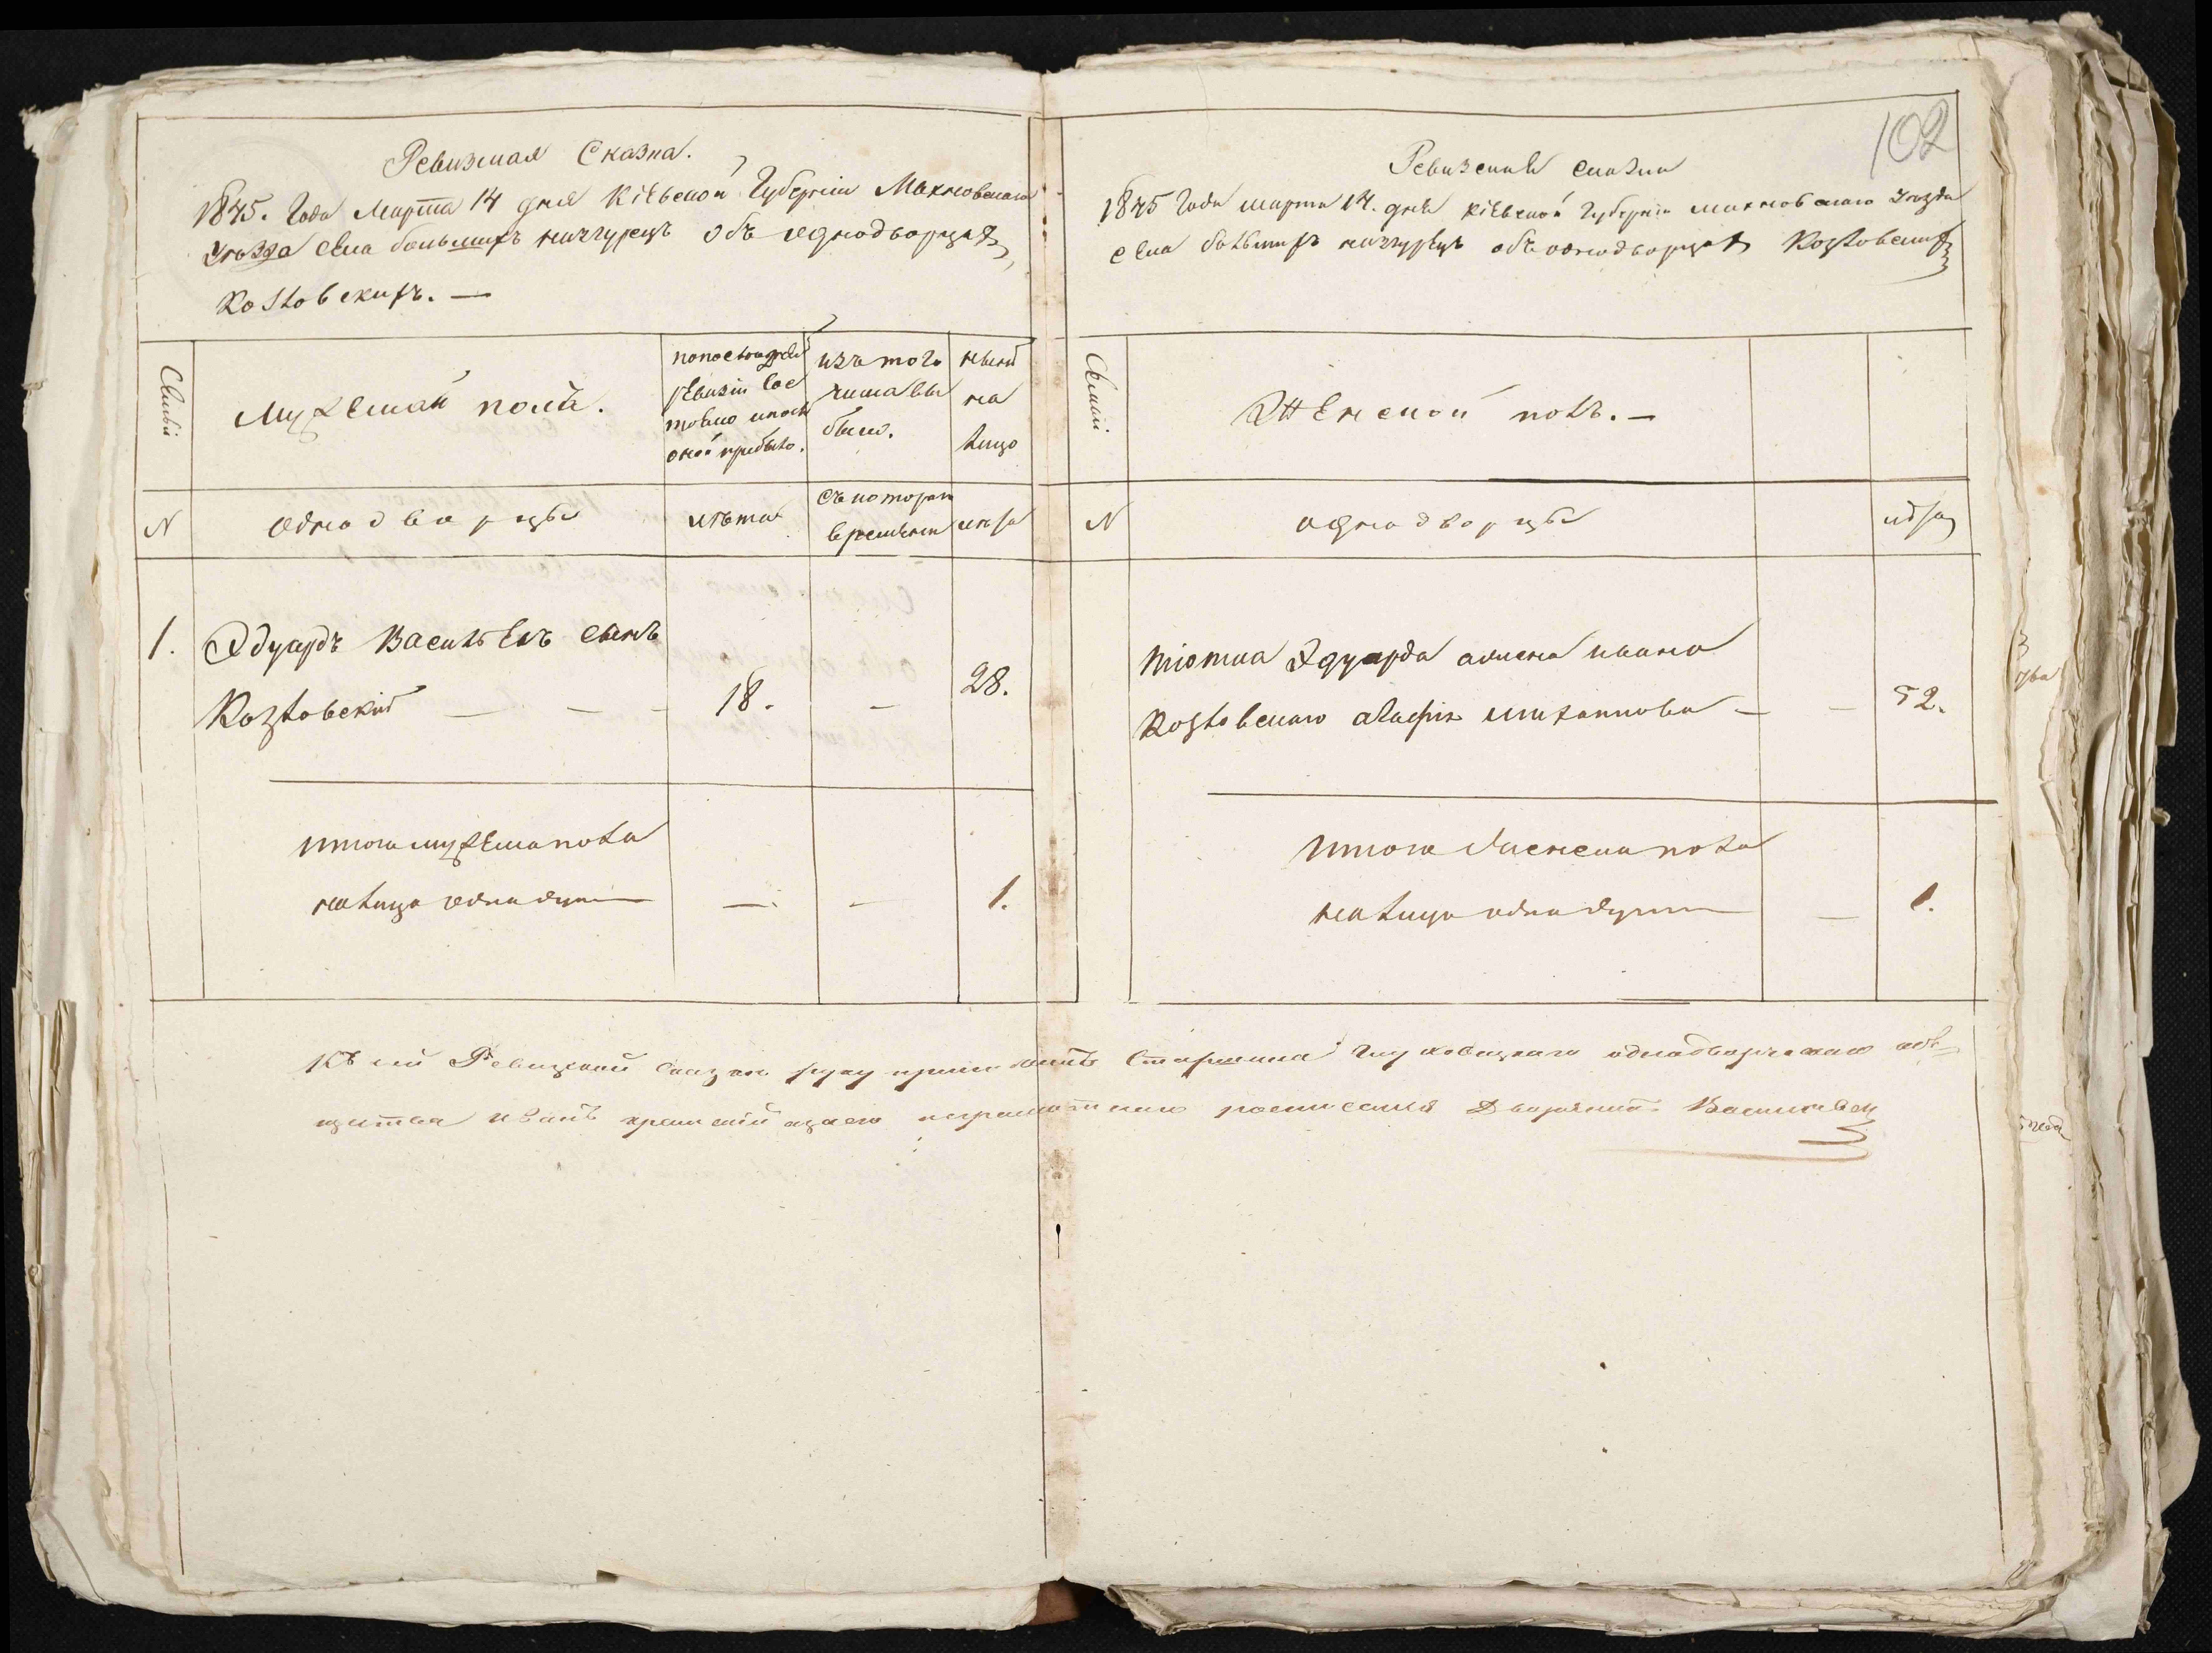 Ревизмая Сказка.
1845. Года Марта 14 дня Кіевской Губерніи Махновскаго
Уѣзда села большихъ низгурецъ объ однодворцах
Козловскихъ. —
Семьи
Мужескій полъ.
По последней
ревизіи сос
тояло и после
оной прибыло.
изъ того
числа вы
было.
ныне
на
лицо
N
однодворцы
лѣта
съ котораго
времени
лѣта
1.
Эдуардъ Васильевъ сынъ
Козловскій — — —
18.
—
28.
итого мужеска пола
на лицо одна душа
—.
—
1.
102
Ревизская сказка
1845 Года марта 14. дня Кіевской Губерніи махновскаго Уезда
села большихъ низгурецъ объ однодворцах Козловских
Семьи.
Женской полъ. —
N
однодворцы
лѣта
Тіотка Эдуарда жена ивана
Козловскаго михаилова —
—
52.
итого женска пола
на лицо одна душа
—
1.
Къ сей Ревизской сказке руку приложилъ Старшина однодворческаго об-
щества иванъ а за его неграмотнаго росписался Дворянинъ